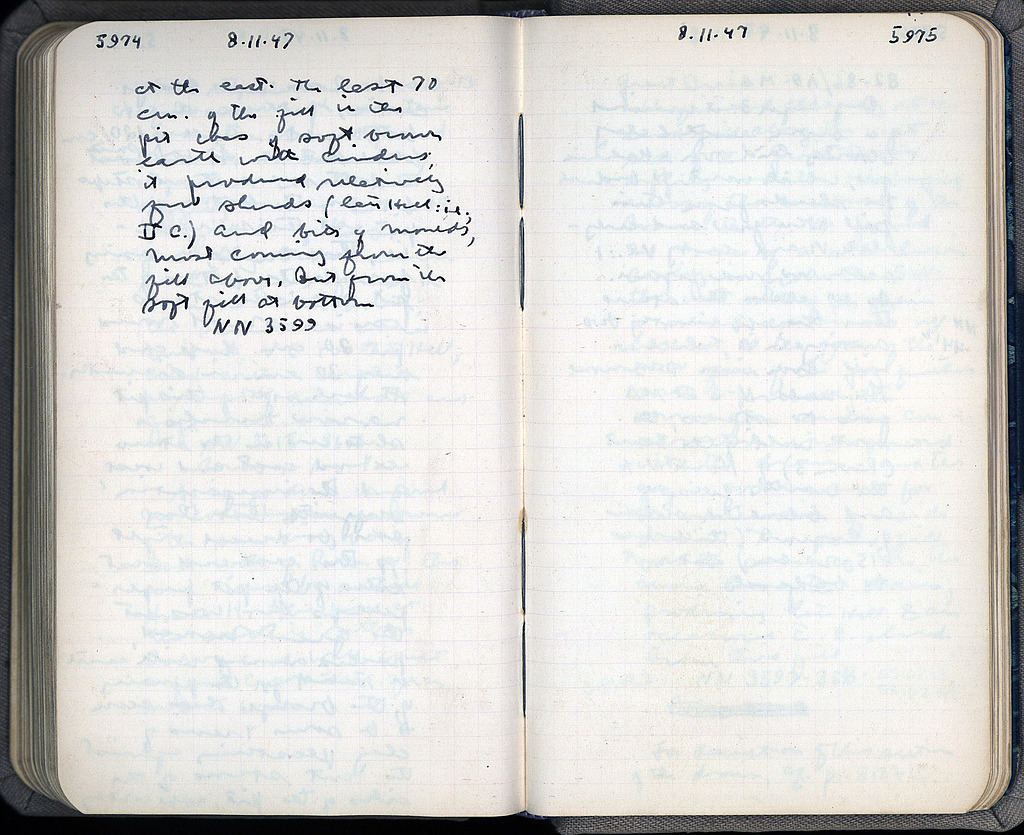 5974 8.11.47
at the east. The last 70
cm. of the fill in the
pit was of soft brown
earth with cinders;
it produced relatively
few sherds (late Hell:
II C.) and bits of moulds,
most coming from the
fill above, but from the
soft fill at bottom
NN 3599
8.11.47 5975